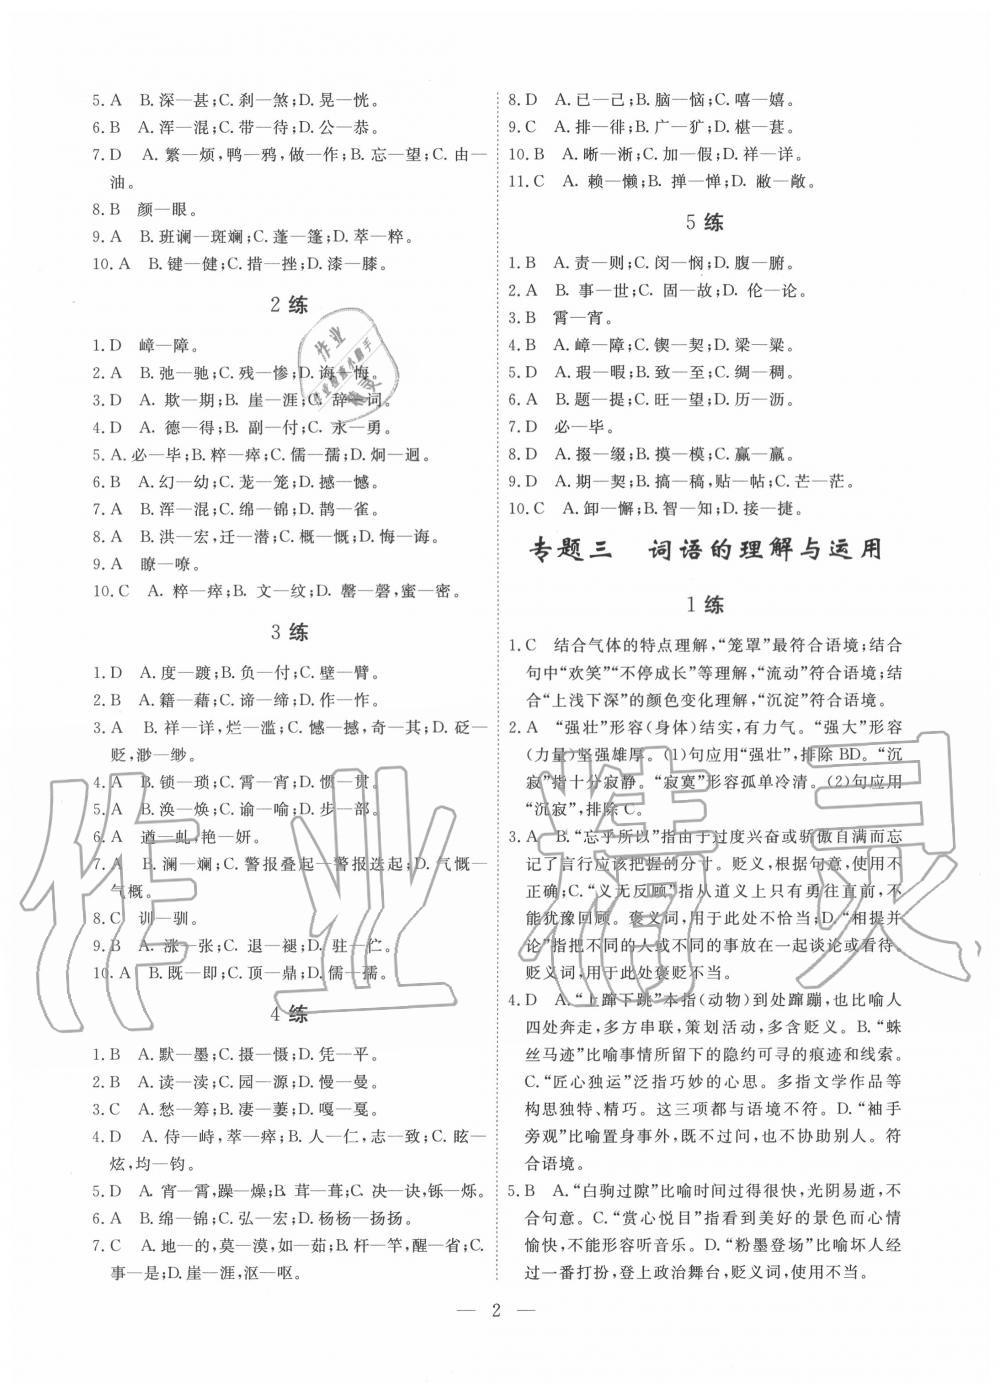 5. A　B. 深—甚;C. 刹—煞;D. 晃—恍。
6. B　A. 浑—混;C. 带—待;D. 公—恭。
7. D　A. 繁—烦,鸭—鸦,做—作;B. 忘—望;C. 由—
油。
8. B　颜—眼。
9. A　B. 班谰—斑斓;C. 蓬—篷;D. 萃—粹。
10. A　B. 键—健;C. 措—挫;D. 漆—膝。
2 练
1. D　嶂—障。
2. A　B. 弛—驰;C. 残—惨;D. 诲—悔。
3. D　A. 欺—期;B. 崖—涯;C. 辞—词。
4. D　A. 德—得;B. 副—付;C. 永—勇。
5. A. 必—毕;B. 粹—瘁;C. 儒—孺;D. 炯—迥。
6. B　A. 幻—幼;C. 茏—笼;D. 撼—憾。
7. B　A. 浑—混;C. 绵—锦;D. 鹊—雀。
8. A　B. 洪—宏,迁—潜;C. 概—慨;D. 幅—副。
9. A　瞭—嘹。
10. C　A. 粹—瘁;B. 文—纹;D. 罄—磬,蜜—密。
3 练
1. D　A. 度—踱;B. 负—付;C. 壁—臂。
2. B　A. 籍—藉;C. 谛—缔;D. 作—怍。
3. A　B. 祥—详,烂—滥;C. 憾—撼,奇—其;D. 砭—
贬,渺—缈。
4. A　B. 锁—琐;C. 霄—宵;D. 惯—贯。
5. A　B. 涣—焕;C. 谕—喻;D. 步—部。
6. A　遒—虬,艳—妍。
7. A　B. 澜—斓;C. 警报叠起—警报迭起;D. 气慨—
气概。
8. C　训—驯。
9. B　A. 涨—张;C. 退—褪;D. 驻—伫。
10. A　B. 既—即;C. 顶—鼎;D. 儒—孺。
4 练
1. B　A. 默—墨;C. 摄—慑;D. 凭—平。
2. B　A. 读—渎;C. 园—源;D. 慢—曼。
3. C　A. 愁—筹;B. 凄—萋;D. 嘎—戛。
4. D　A. 侍—峙,萃—瘁;B. 人—仁,志—致;C. 眩—
炫,均—钧。
5. D　A. 宵—霄,躁—燥;B. 茸—葺;C. 决—诀,铄—烁。
6. A　B. 绵—锦;C. 弘—宏;D. 杨杨—扬扬。
7. C　A. 地—的,莫—漠,如—茹;B. 杆—竿,醒—省;C.
事—是;D. 崖—涯,沤—呕。
8. D　A. 已—己;B. 脑—恼;C. 嘻—嬉。
9. C　A. 排—徘;B. 广—犷;D. 椹—葚。
10. B　A. 晰—淅;C. 加—假;D. 祥—详。
11. C　A. 赖—懒;B. 掸—惮;D. 敝—敞。
5 练
1. B　A. 责—则;C. 闵—悯;D. 腹—腑。
2. A　B. 事—世;C. 固—故;D. 伦—论。
3. B　霄—宵。
4. B　A. 嶂—障;C. 锲—契;D. 梁—粱。
5. D　A. 瑕—暇;B. 致—至;C. 绸—稠。
6. A　B. 题—提;C. 旺—望;D. 历—沥。
7. D　必—毕。
8. D　A. 掇—缀;B. 摸—模;C. 赢—嬴。
9. D　A. 期—契;B. 搞—稿,贴—帖;C. 芒—茫。
10. C　A. 卸—懈;B. 智—知;D. 接—捷。
专题三　词语的理解与运用
1 练
1. C　结合气体的特点理解,“笼罩”最符合语境;结合
句中“欢笑”“不停成长”等理解,“流动”符合语境;结
合“上浅下深”的颜色变化理解,“沉淀”符合语境。
2. A　“强壮”形容(身体)结实,有力气。“强大”形容
(力量)坚强雄厚。(1)句应用“强壮”,排除 BD。“沉
寂”指十分寂静。“寂寞”形容孤单冷清。(2)句应用
“沉寂”,排除 C。
3. A　B. “忘乎所以”指由于过度兴奋或骄傲自满而忘
记了言行应该把握的分寸。贬义词,根据句意,使用不
正确;C. “义无反顾”指从道义上只有勇往直前,不
能犹豫回顾。褒义词,用于此处不恰当;D. “相提并
论”指把不同的人或不同的事放在一起谈论或看待。
贬义词,用于此处褒贬不当。
4. D　A. “上蹿下跳”本指(动物)到处蹿蹦,也比喻人
四处奔走,多方串联,策划活动,多含贬义。B. “蛛
丝马迹”比喻事情所留下的隐约可寻的痕迹和线索。
C. “匠心独运”泛指巧妙的心思。多指文学作品等
构思独特、精巧。这三项都与语境不符。D. “袖手
旁观”比喻置身事外,既不过问,也不协助别人。符
合语境。
5. B　A. “白驹过隙”比喻时间过得很快,光阴易逝,不
合句意。C. “赏心悦目”指看到美好的景色而心情
愉快,不能形容听音乐。D. “粉墨登场”比喻坏人经
过一番打扮,登上政治舞台,贬义词,使用不当。
— 2 —
作业精灵